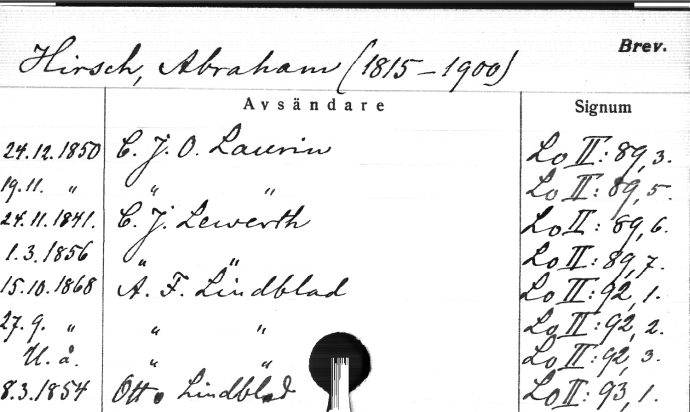 Brev.
Hirsch, Abraham (1815-1900)
Avsändare Signum
24.12.1850 C. J. O. Laurin Lo II: 89, 3.
19.11. " " " Lo II: 89, 5.
24.11.1841. C. J. Lewerth Lo II: 89, 6.
1.3.1856 " " Lo II: 89, 7.
15.10.1868 A. F. Lindblad Lo II: 92, 1.
27.9. " " " Lo II: 92, 2.
U.å. " " Lo II: 92, 3.
8.3.1854 Otto Lindblad Lo II: 93, 1.